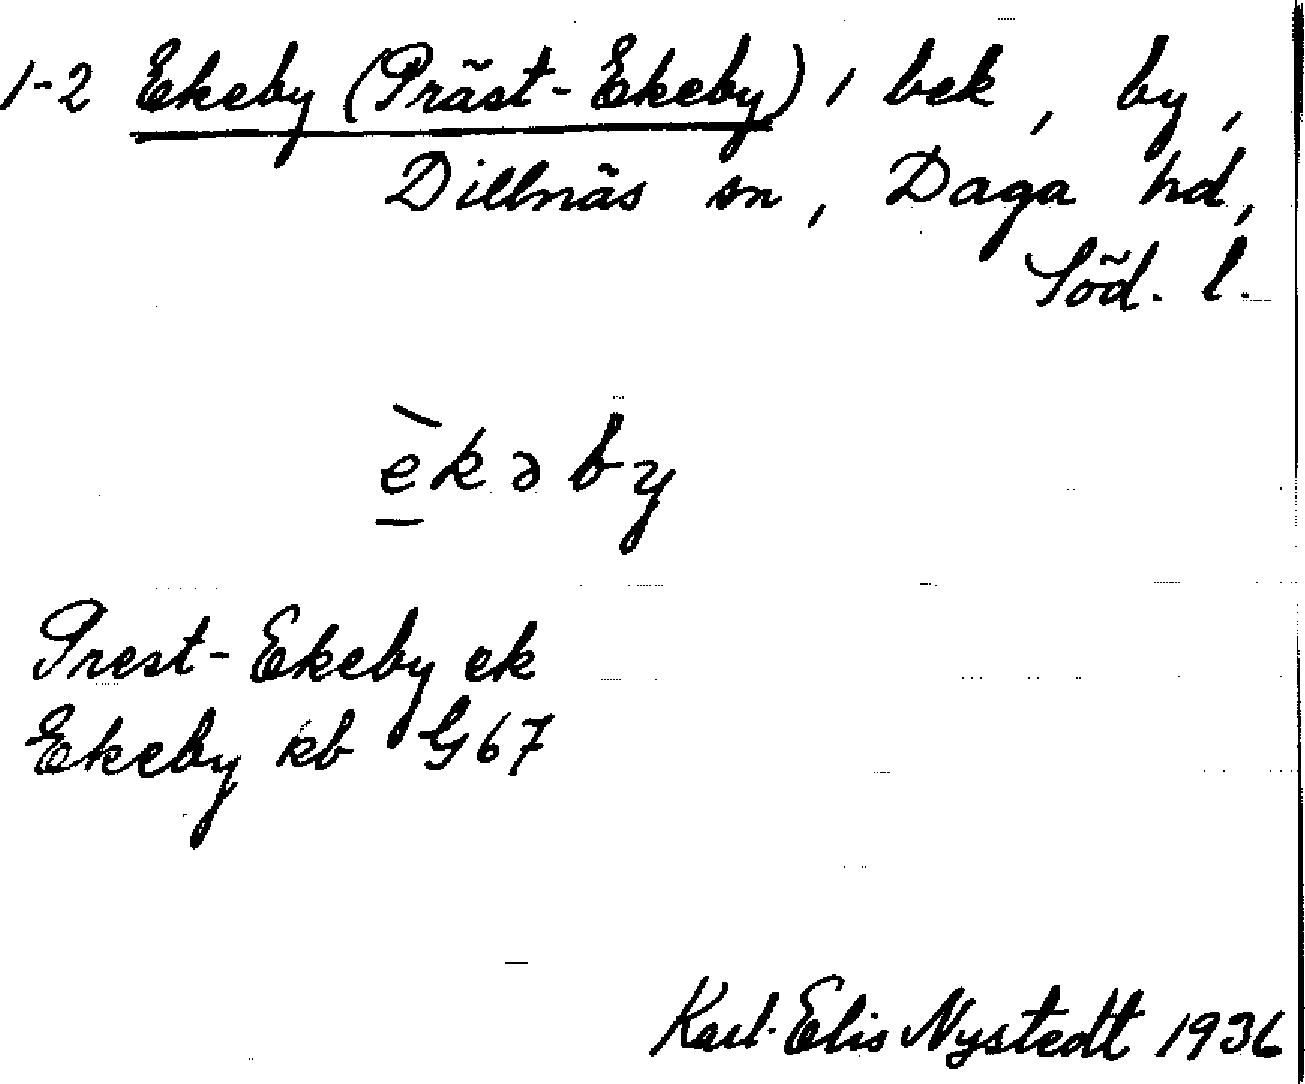 1-2 Ekeby (Präst-Ekeby), bek, by,
Dillnäs sn, Daga hd,
Söd. l.
èkəby
Prest-Ekeby ek
Ekeby kb G 67
Karl-Elis Nystedt 1936